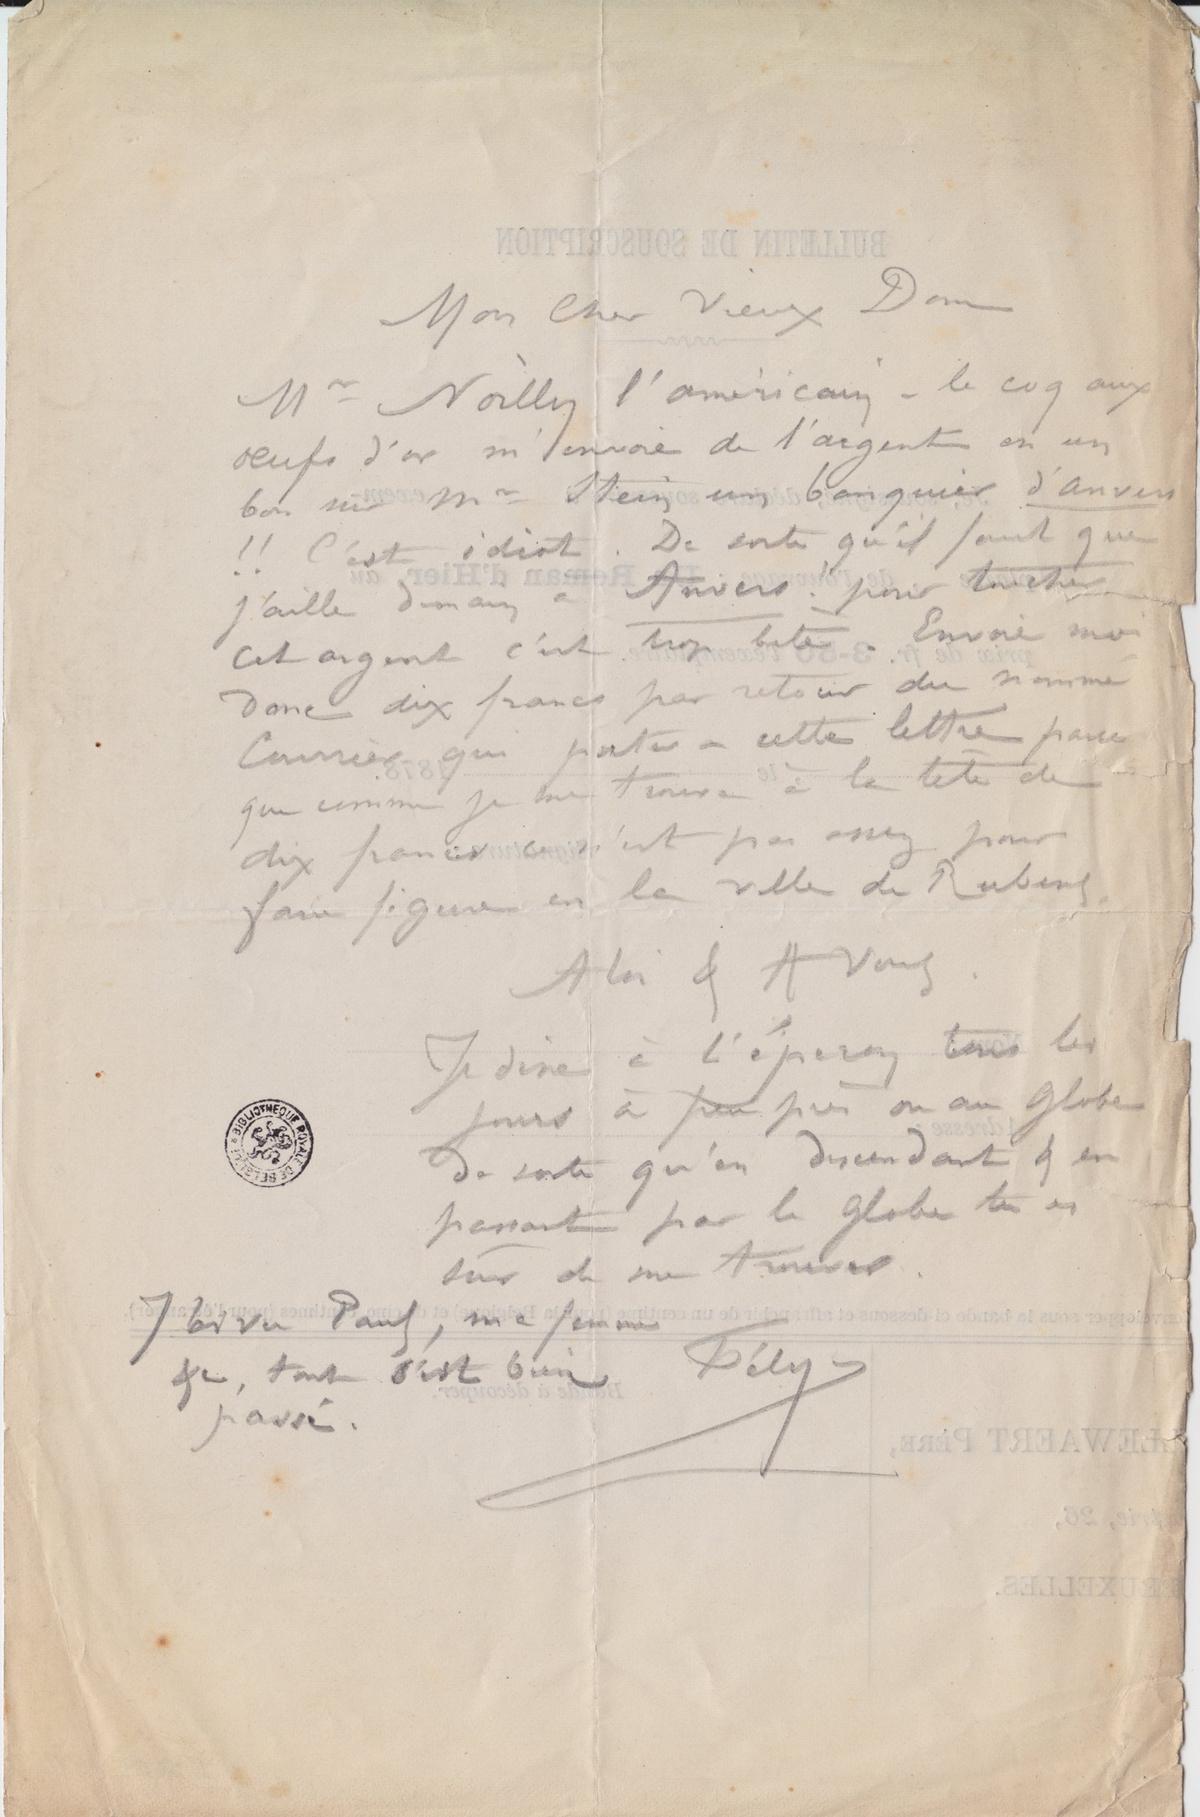 Mon Cher Vieux Dom
Mr Noilly l'américain - le coq aux
œufs d'or m'envoie de l'argent en un
bon sur Mr Stein un banquier d'anvers
!! C'est idiot. De sorte qu'il faut que
j'aille demain a Anvers! pour toucher
cet argent c'est trop bête. Envoie moi
Donc dix francs par retour du nommé
Courrier qui portera cette lettre parce
que comme je me trouve à la tête de
dix francs ce n'est pas assez pour
faire figure en la ville de Rubens.
A toi & A Vous.
Je dine à l'éperon tous les
jours à peu près ou au Globe
De sorte qu'en descendant & en
passant par le Globe tu es
sûr de me trouver.
J'ai vu Paul, ma femme
&c, tout s'est bien
passé.
Fély
BIBLIOTHEQUE ROYALE DE BELGIQUE
BULLETIN DE SOUSCRIPTION
Roman d'Hier, au
prix de fr. 3-50 l'exemplaire.
le 1878.
Signature
Nom
Adresse
Bande à découper.
LEWAERT PÈRE,
26,
BRUXELLES.